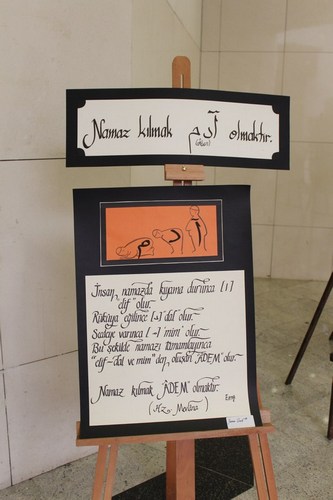 Namaz kılmak آدم olmaktır.
İnsan, namazda kıyama durunca [ا]
"elif" olur.
Rükûya eğilince [د] "dal" olur.
Secdeye varınca [م] "mim" olur.
Bu şekilde namazı tamamlayınca
"elif-dal ve mim"den oluşan "ÂDEM" olur.
Namaz kılmak "ÂDEM" olmaktır.
(Hz. Mevlâna)